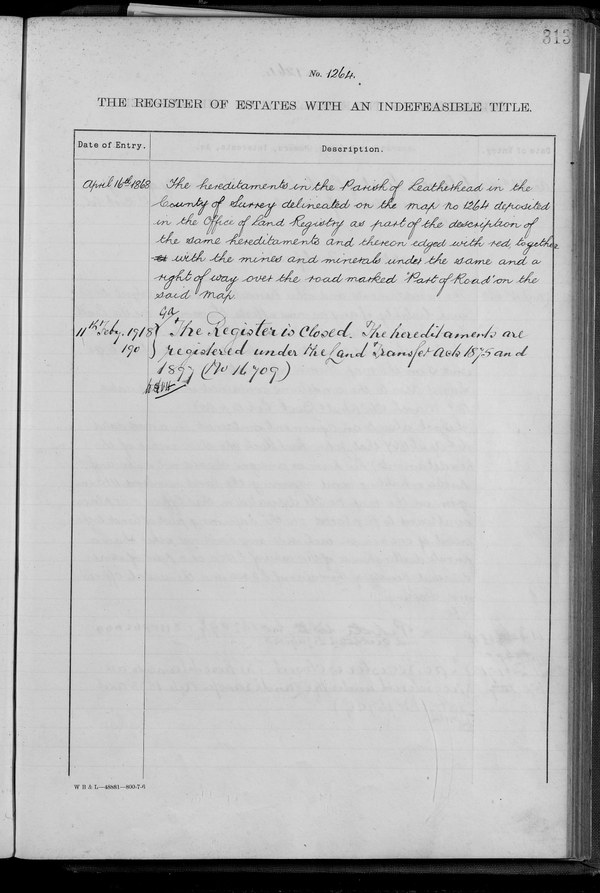 313
No. 1264.
THE REGISTER OF ESTATES WITH AN INDEFEASIBLE TITLE.
Date of Entry.
Description.
April 16th 1868
The hereditaments in the Parish of Leatherhead in the
County of Surrey delineated on the map no 1264 deposited
in the Office of Land Registry as part of the description of
the same hereditaments and thereon edged with red together
with the mines and minerals under the same and a
right of way over the road marked 'Part of Road' on the
said map
11th Feby. 1918
190
The Register is Closed. The hereditaments are
registered under the Land Transfer Acts 1875 and
1897 (No 16709)
W B & L—48881—800-7-6